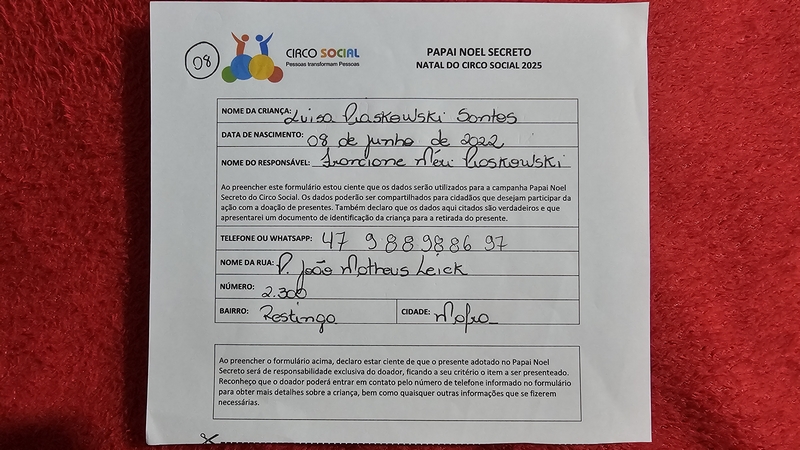 08
CIRCO SOCIAL
Pessoas transformam Pessoas
PAPAI NOEL SECRETO
NATAL DO CIRCO SOCIAL 2025
NOME DA CRIANÇA: Luisa Piaskowski Santos
DATA DE NASCIMENTO: 08 de junho de 2022
NOME DO RESPONSÁVEL: Franciane Méri Piaskowski
Ao preencher este formulário estou ciente que os dados serão utilizados para a campanha Papai Noel
Secreto do Circo Social. Os dados poderão ser compartilhados para cidadãos que desejam participar da
ação com a doação de presentes. Também declaro que os dados aqui citados são verdadeiros e que
apresentarei um documento de identificação da criança para a retirada do presente.
TELEFONE OU WHATSAPP: 47 9 889886 97
NOME DA RUA: P. João Matheus Leick
NÚMERO: 2.300
BAIRRO: Restinga CIDADE: Mafra
Ao preencher o formulário acima, declaro estar ciente de que o presente adotado no Papai Noel
Secreto será de responsabilidade exclusiva do doador, ficando a seu critério o item a ser presenteado.
Reconheço que o doador poderá entrar em contato pelo número de telefone informado no formulário
para obter mais detalhes sobre a criança, bem como quaisquer outras informações que se fizerem
necessárias.